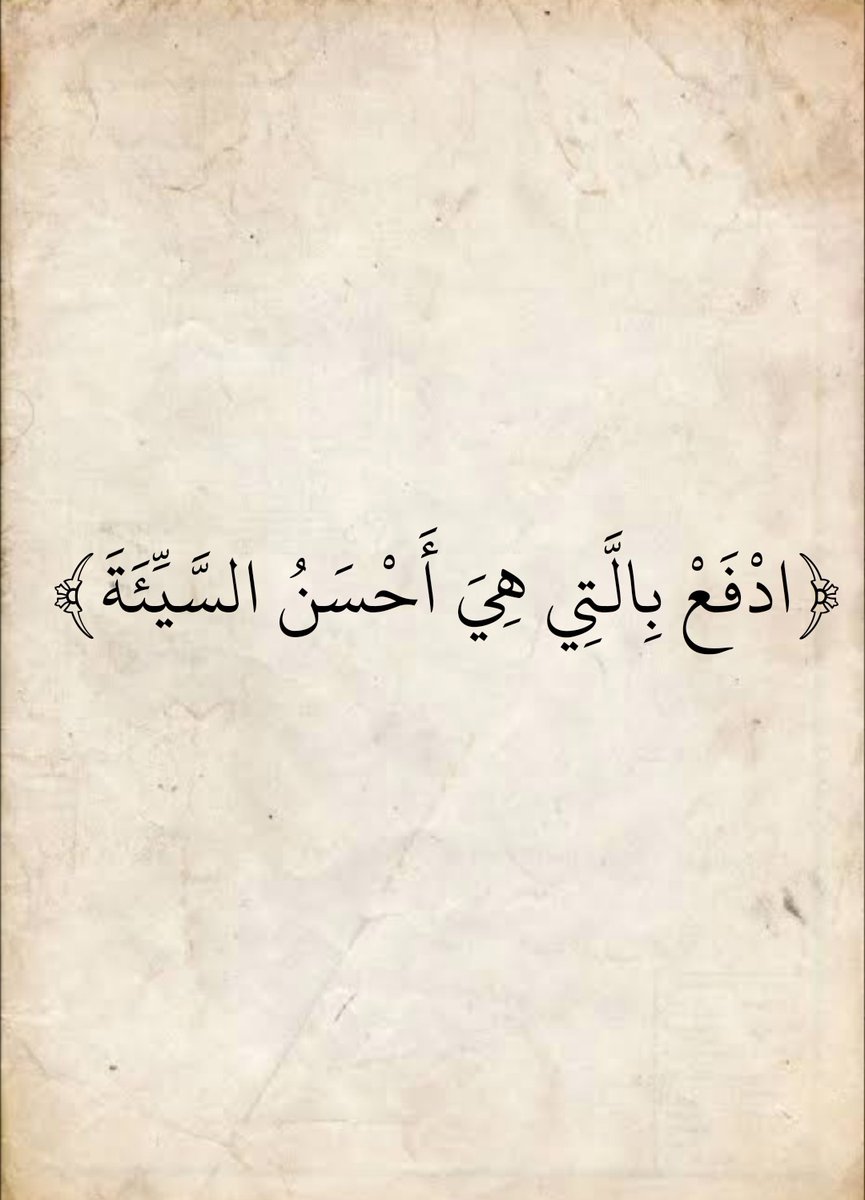 ﴿ادْفَعْ بِالَّتِي هِيَ أَحْسَنُ السَّيِّئَةَ﴾